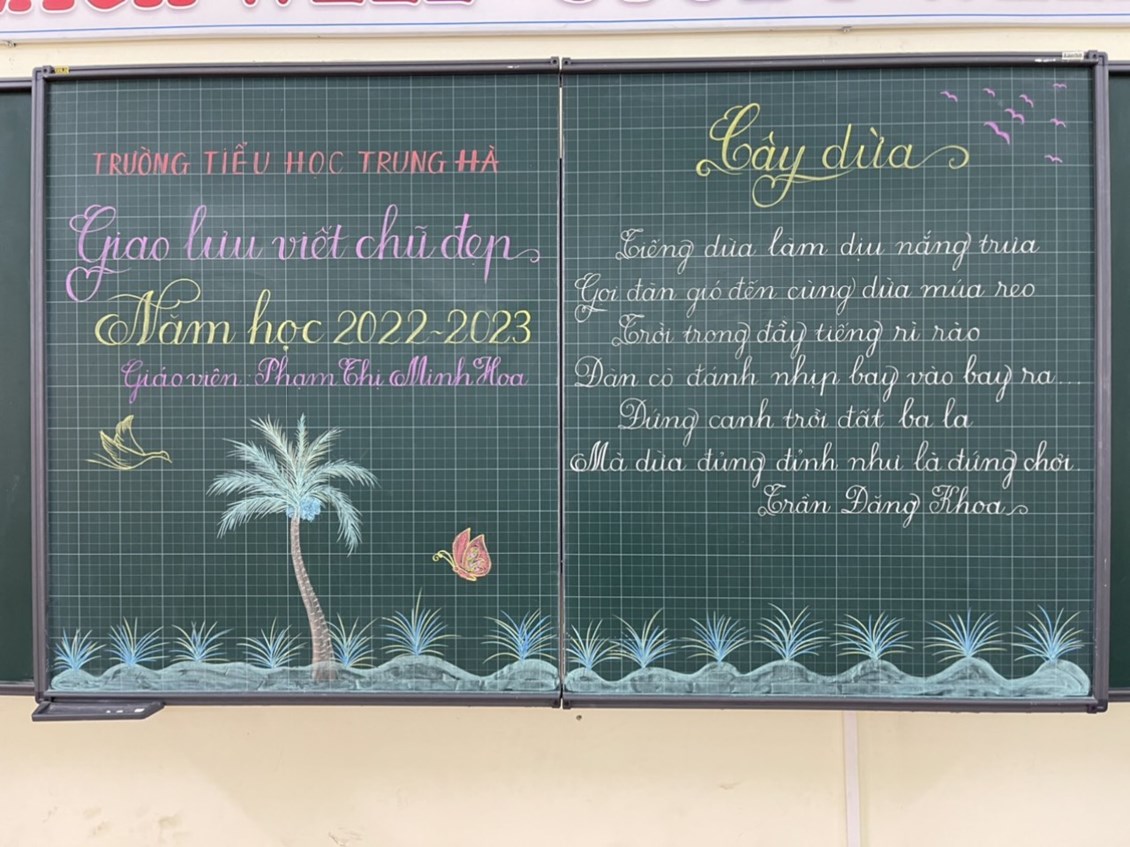 TRƯỜNG TIỂU HỌC TRUNG HÀ
Giao lưu viết chữ đẹp
Năm học 2022-2023
Giáo viên: Phạm Thị Minh Hoa
Cây dừa
Tiếng dừa làm dịu nắng trưa
Gọi đàn gió đến cùng dừa múa reo
Trời trong đầy tiếng rì rào
Đàn cò đánh nhịp bay vào bay ra...
Đứng canh trời đất bao la
Mà dừa đủng đỉnh như là đứng chơi.
Trần Đăng Khoa